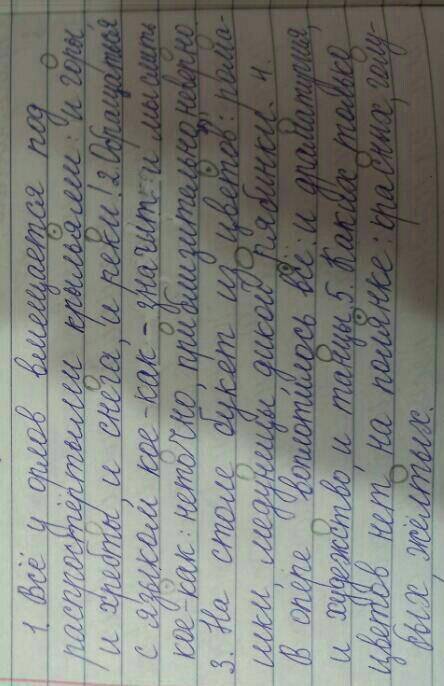 1. Всё у орлов вмещается под
распростёртыми крыльями: и горы
и хребты, и снега, и реки! 2. Обращаться
с языком кое-как - значит и мыслить
кое-как: неточно, приблизительно, неверно
3. На столе букет из цветов: рома-
шки, медуницы, дикой рябинки. 4.
В опере воплотилось всё: и драматургия,
и художество, и танцы. 5. Каких только
цветов нет на полянке: красных, голу-
бых, жёлтых.